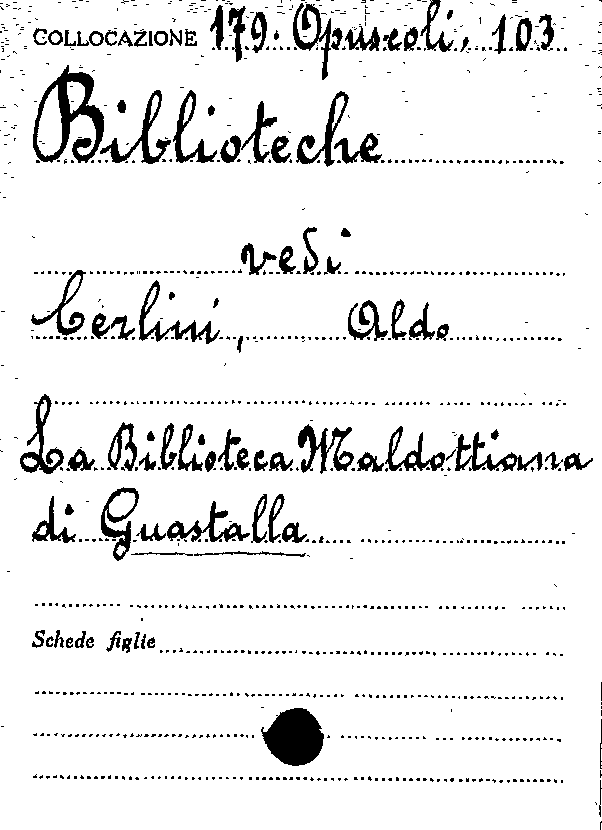 COLLOCAZIONE 179. Opuscoli, 103
Biblioteche
vedi
Cerlini, Aldo
La Biblioteca Maldottiana
di Guastalla.
Schede figlie